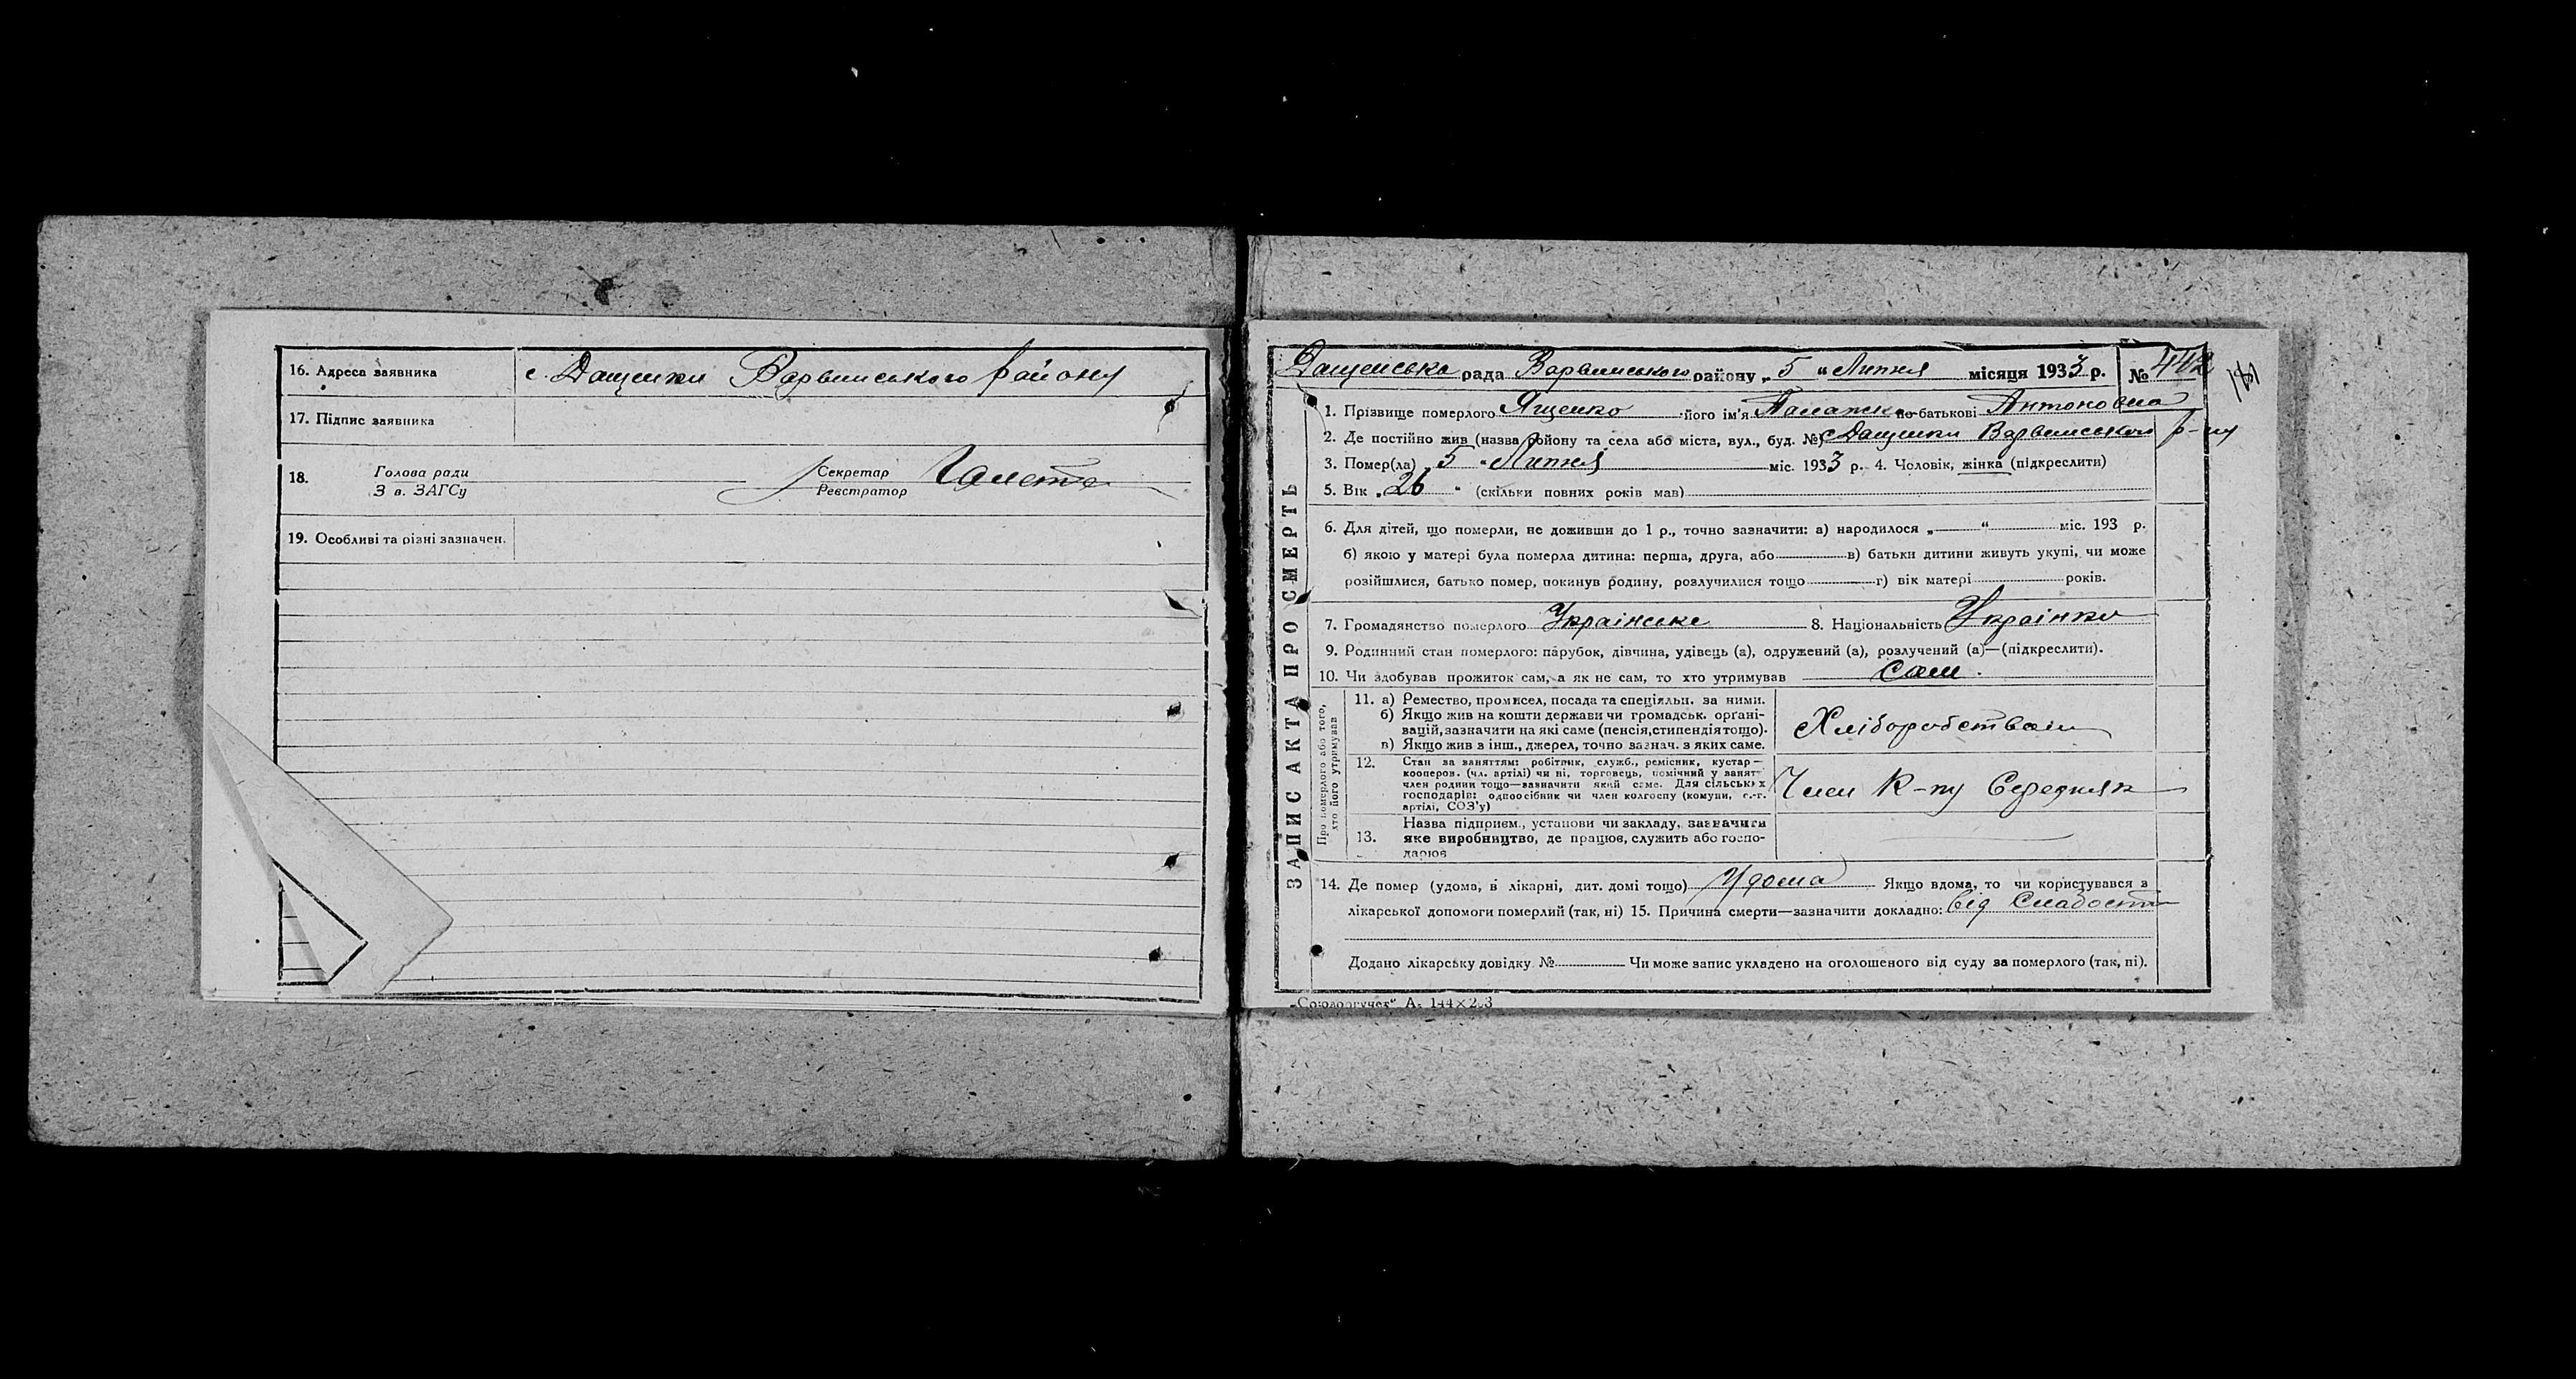 16. Адреса заявника с. Дащенки Варвинського району
17. Підпис заявника
18. Голова ради Секретар
З в. ЗАГСу Реєстратор
19. Особливі та різні зазначен.
Дащенська рада Варвинського району „5“ Липня місяця 1933 р. № 442
ЗАПИС АКТА ПРО СМЕРТЬ
1. Прізвище померлого Ященко його ім'я Палажка по-батькові Антоновна
2. Де постійно жив (назва району та села або міста, вул., буд. №) с Дащенки Варвинського р-ну
3. Помер(ла) „5“ Липня міс. 1933 р. 4. Чоловік, жінка (підкреслити)
5. Вік „26“ (скільки повних років мав)
6. Для дітей, що померли, не доживши до 1 р., точно зазначити: а) народилося „ “ міс. 193 р.
б) якою у матері була померла дитина: перша, друга, або в) батьки дитини живуть укупі, чи може
розійшлися, батько помер, покинув родину, розлучилися тощо г) вік матері років.
7. Громадянство померлого Українське 8. Національність Українка
9. Родинний стан померлого: парубок, дівчина, удівець (а), одружений (а), розлучений (а)—(підкреслити).
10. Чи здобував прожиток сам, а як не сам, то хто утримував сам.
Про померлого або того,
хто його утримував
11. а) Ремество, промисел, посада та спеціяльн. за ними.
б) Якщо жив на кошти держави чи громадськ. орґані-
зацій, зазначити на які саме (пенсія, стипендія тощо).
в) Якщо жив з інш., джерел, точно зазнач. з яких саме.
Хліборобством
12. Стан за заняттям: робітник, служб., ремісник, кустар—
кооперов. (чл. артілі) чи ні, торговець, помічний у занят
член родини тощо—зазначити який саме. Для сільських
господарів: одноосібник чи член колгоспу (комуни, с.-г.
артілі, СОЗ'у)
Член К-пу Середняк
13. Назва підприєм., установи чи закладу, зазначити
яке виробництво, де працює, служить або госпо-
дарює
14. Де помер (удома, в лікарні, дит. домі тощо) Удома Якщо вдома, то чи користувався з
лікарської допомоги померлий (так, ні) 15. Причина смерти—зазначити докладно: від Слабости
Додано лікарську довідку № Чи може запис укладено на оголошеного від суду за померлого (так, ні).
„Союзоргучет“ А₅ 144×203